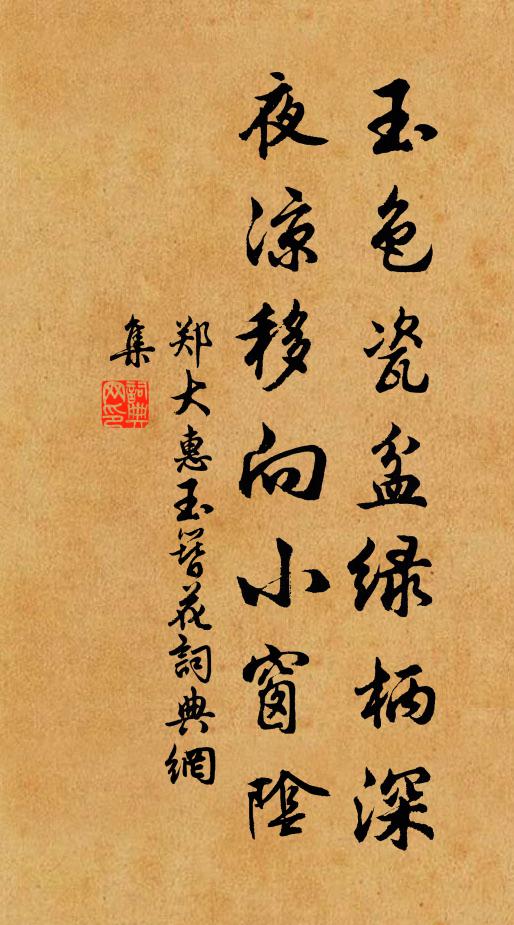 玉色瓷盆绿柄深
夜凉移向小窗阴
郑大惠玉簪花詞典網
集
詞典網印